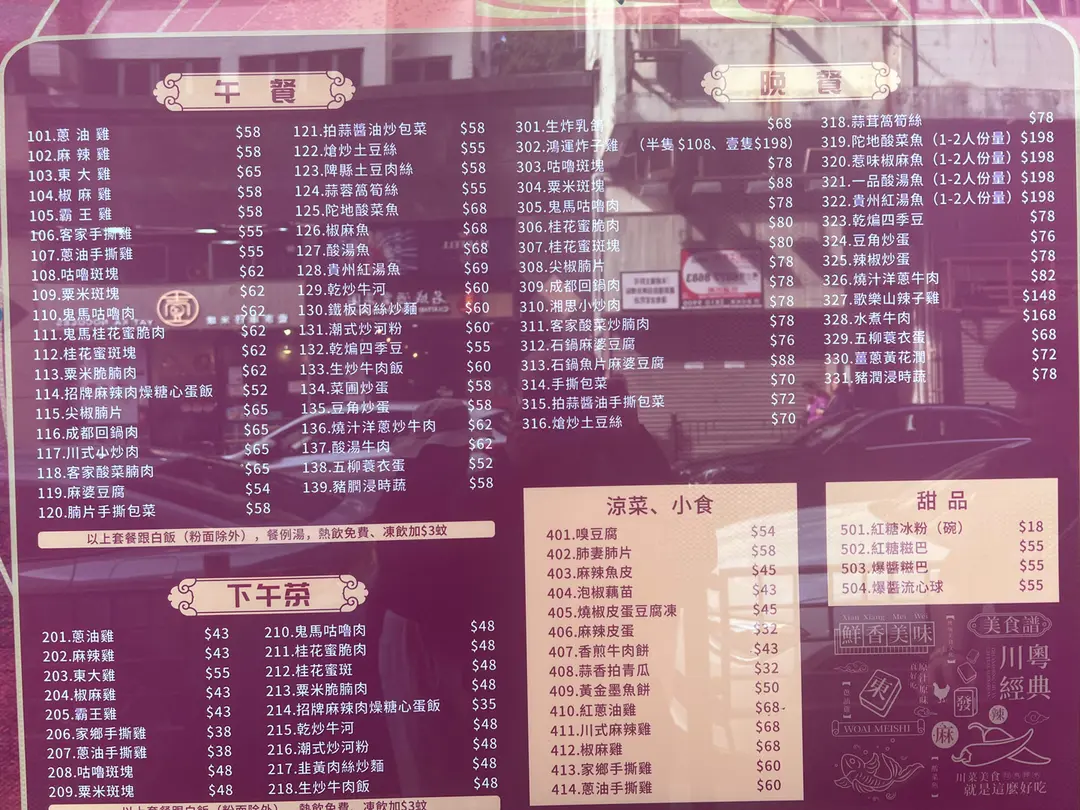 午餐
101.蔥油雞 $58
102.麻辣雞 $58
103.東大雞 $65
104.椒麻雞 $58
105.霸王雞 $58
106.客家手撕雞 $55
107.蔥油手撕雞 $55
108.咕嚕斑塊 $62
109.粟米斑塊 $62
110.鬼馬咕嚕肉 $62
111.鬼馬桂花蜜脆肉 $62
112.桂花蜜斑塊 $62
113.粟米脆腩肉 $62
114.招牌麻辣肉燥糖心蛋飯 $52
115.尖椒腩片 $65
116.成都回鍋肉 $65
117.川式小炒肉 $65
118.客家酸菜腩肉 $65
119.麻婆豆腐 $54
120.腩片手撕包菜 $58
121.拍蒜醬油炒包菜 $58
122.熗炒土豆絲 $55
123.陴縣土豆肉絲 $58
124.蒜蓉萵筍絲 $55
125.陀地酸菜魚 $68
126.椒麻魚 $68
127.酸湯魚 $68
128.貴州紅湯魚 $69
129.乾炒牛河 $60
130.鐵板肉絲炒麵 $60
131.潮式炒河粉 $60
132.乾煸四季豆 $55
133.生炒牛肉飯 $60
134.菜圃炒蛋 $58
135.豆角炒蛋 $58
136.燒汁洋蔥炒牛肉 $62
137.酸湯牛肉 $62
138.五柳蓑衣蛋 $52
139.豬膶浸時蔬 $58
以上套餐跟白飯（粉面除外），餐例湯，熱飲免費、凍飲加$3蚊
下午茶
201.蔥油雞 $43
202.麻辣雞 $43
203.東大雞 $55
204.椒麻雞 $43
205.霸王雞 $43
206.家鄉手撕雞 $38
207.蔥油手撕雞 $38
208.咕嚕斑塊 $48
209.粟米斑塊 $48
210.鬼馬咕嚕肉 $48
211.桂花蜜脆肉 $48
212.桂花蜜斑 $48
213.粟米脆腩肉 $48
214.招牌麻辣肉燥糖心蛋飯 $35
215.乾炒牛河 $48
216.潮式炒河粉 $48
217.韭黃肉絲炒麵 $48
218.生炒牛肉飯 $48
以上套餐跟白飯（粉面除外），熱飲免費、凍飲加$3蚊
晚餐
301.生炸乳鴿 $68
302.鴻運炸子雞 （半隻$108、壹隻$198）
303.咕嚕斑塊 $78
304.粟米斑塊 $88
305.鬼馬咕嚕肉 $78
306.桂花蜜脆肉 $80
307.桂花蜜斑塊 $80
308.尖椒腩片 $78
309.成都回鍋肉 $78
310.湘思小炒肉 $78
311.客家酸菜炒腩肉 $78
312.石鍋麻婆豆腐 $76
313.石鍋魚片麻婆豆腐 $88
314.手撕包菜 $70
315.拍蒜醬油手撕包菜 $72
316.熗炒土豆絲 $70
318.蒜茸萵筍絲 $78
319.陀地酸菜魚（1-2人份量）$198
320.惹味椒麻魚（1-2人份量）$198
321.一品酸湯魚（1-2人份量）$198
322.貴州紅湯魚（1-2人份量）$198
323.乾煸四季豆 $78
324.豆角炒蛋 $76
325.辣椒炒蛋 $78
326.燒汁洋蔥牛肉 $82
327.歌樂山辣子雞 $148
328.水煮牛肉 $168
329.五柳蓑衣蛋 $68
330.薑蔥黃花膶 $72
331.豬膶浸時蔬 $78
涼菜、小食
401.嗅豆腐 $54
402.肺妻肺片 $58
403.麻辣魚皮 $45
404.泡椒藕苗 $43
405.燒椒皮蛋豆腐凍 $45
406.麻辣皮蛋 $32
407.香煎牛肉餅 $43
408.蒜香拍青瓜 $32
409.黃金墨魚餅 $50
410.紅蔥油雞 $68
411.川式麻辣雞 $68
412.椒麻雞 $68
413.家鄉手撕雞 $60
414.蔥油手撕雞 $60
甜品
501.紅糖冰粉（碗） $18
502.紅糖糍巴 $55
503.爆醬糍巴 $55
504.爆醬流心球 $55
Xian Xiang Mei Wei
鮮香美味
美食譜
川粵
經典
東
發
辣
麻
WOAI MEISHI
川菜美食
就是這麼好吃